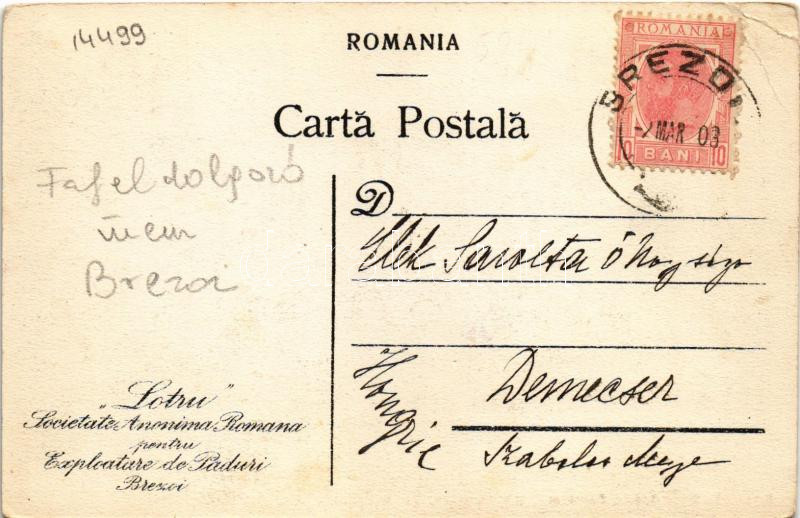 14499
ROMANIA
Carta Postală
ROMANIA
10 BANI 10
BREZOI
MAR 03
Brezoi
D
Elek Sarolta ő Nagysága
Demecser
Hongrie
Szabolcs Megye
"Lotru"
Societate Anonima Romana
pentru
Exploatare de Paduri
Brezoi